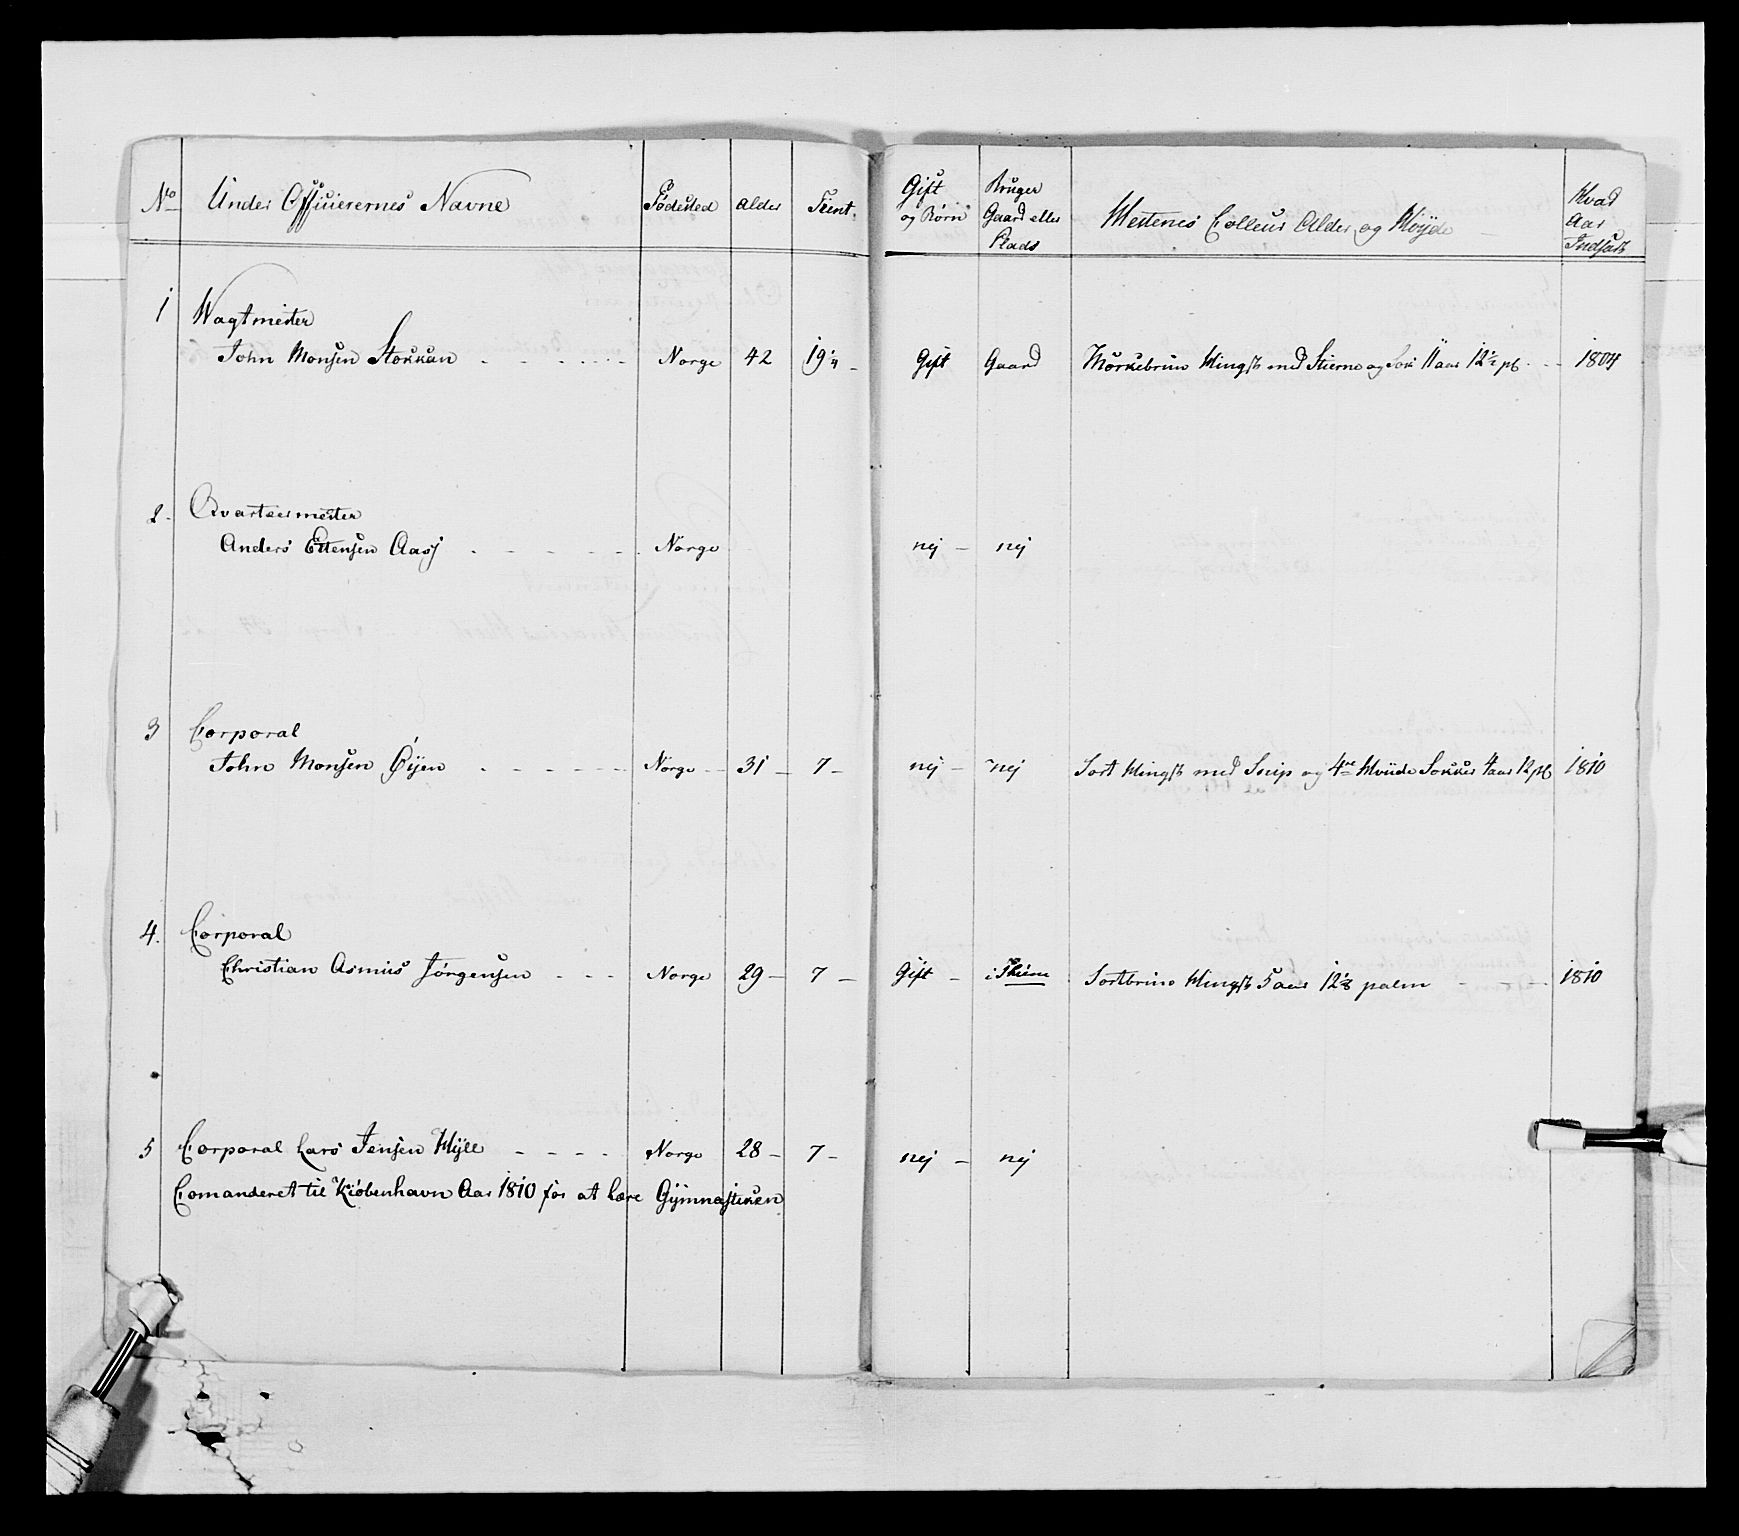 No Under Officierernes Navne Födested Alder Tient. Gift og Börn Bruger Gaard eller Plads Hestenes Colleur Alder og Höyde Hvad Aar Indsadt
1 Wagtmester
John Monsen Stokkan - - - - - Norge 42 19¼ - Gift Gaard Mörkebrun Hingst med Stierne og Sok 11 aar 12½ pl. - - 1804
2. Qvarteermester
Anders Ellensen Aasj - - - - - Norge nej - nej
3 Corporal
John Monsen Öijen - - - - - - Norge - 31 - 7 - nej - nej Sort Hingst med Snip og 4re Hviide Sokker 4 aar 12 pl 1810
4. Corporal
Christian Asmus Jörgensen - - - Norge 29 - 7 - Gift - i Skiene Sortbrun Hingst 5 aar 12⅛ palm - - - 1810
5 Corporal Lars Jensen Hyll - - - - Norge 28 - 7 - nej - nej
Comanderet til Kiöbenhavn Aar 1810 for at lære Gÿmnastiken